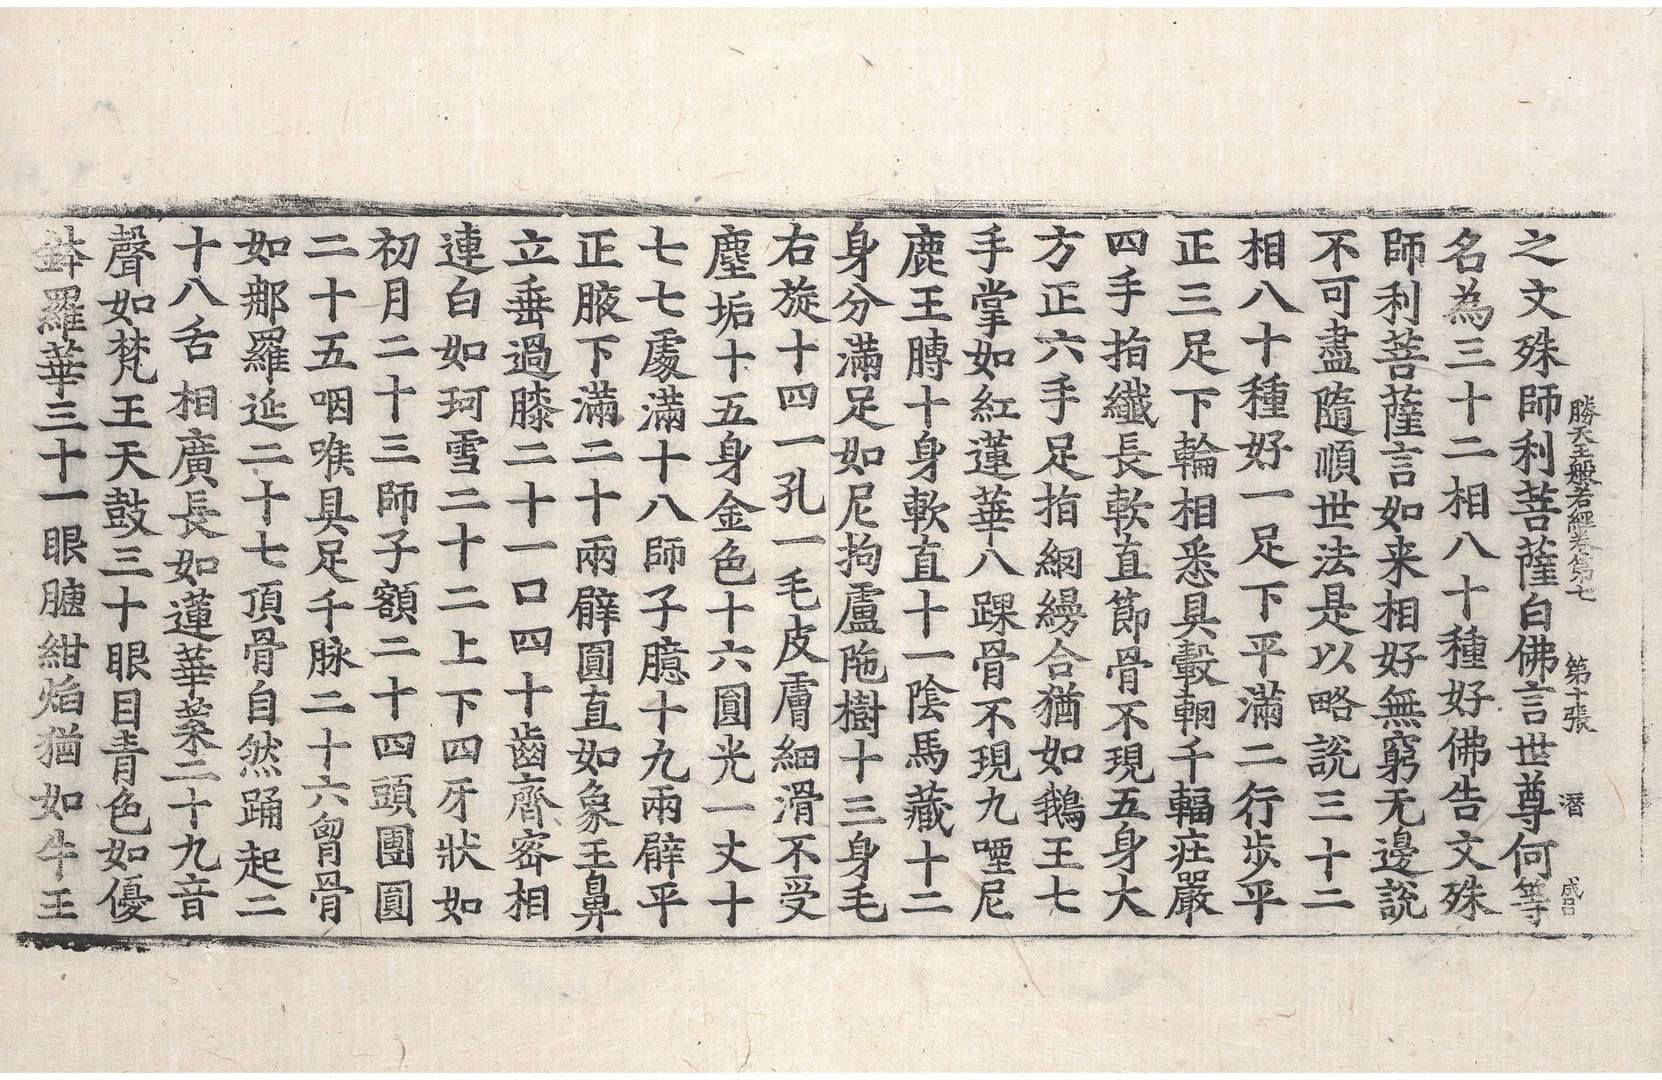 勝天王般若經卷第七　第十張　潛
之文殊師利菩薩白佛言世尊何等
名為三十二相八十種好佛告文殊
師利菩薩言如来相好無窮无邊說
不可盡隨順世法是以略說三十二
相八十種好一足下平滿二行步平
正三足下輪相悉具轂輞千輻莊嚴
四手指纖長軟直節骨不現五身大
方正六手足指網縵合猶如鵝王七
手掌如紅蓮華八踝骨不現九𡍼尼
鹿王膞十身軟直十一陰馬藏十二
身分滿足如尼拘盧陁樹十三身毛
右旋十四一孔一毛皮膚細滑不受
塵垢十五身金色十六圓光一丈十
七七處滿十八師子臆十九兩臂平
正腋下滿二十兩臂圓直如象王鼻
立垂過膝二十一口四十齒齊密相
連白如珂雪二十二上下四牙狀如
初月二十三師子額二十四頭團圓
二十五咽喉具足千脉二十六胷骨
如那羅延二十七頂骨自然踊起二
十八舌相廣長如蓮華葉二十九音
聲如梵王天鼓三十眼目青色如優
鉢羅華三十一眼䁪紺焰猶如牛王